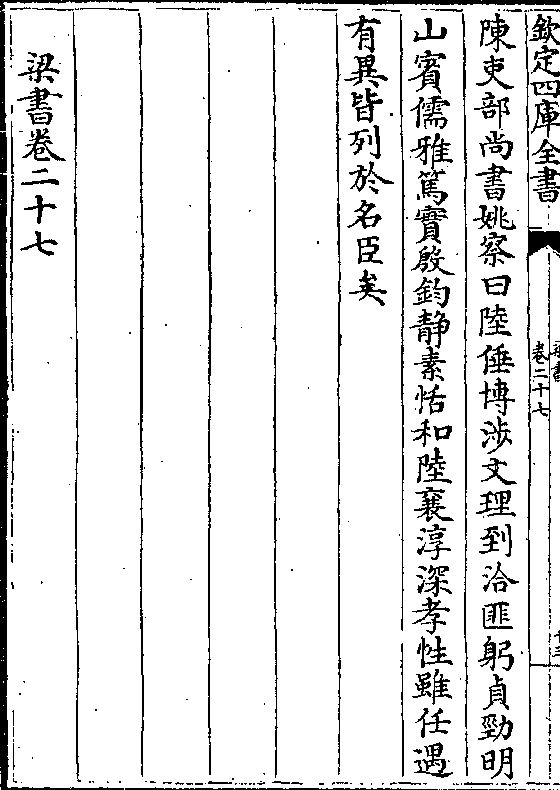 欽定四庫全書
梁書
卷二十七
十三
陳吏部尚書姚察曰陸倕博涉文理到洽匪躬貞勁明
山賓儒雅篤實殷鈞静素恬和陸襄淳深孝性雖任遇
有異皆列於名臣矣
梁書卷二十七